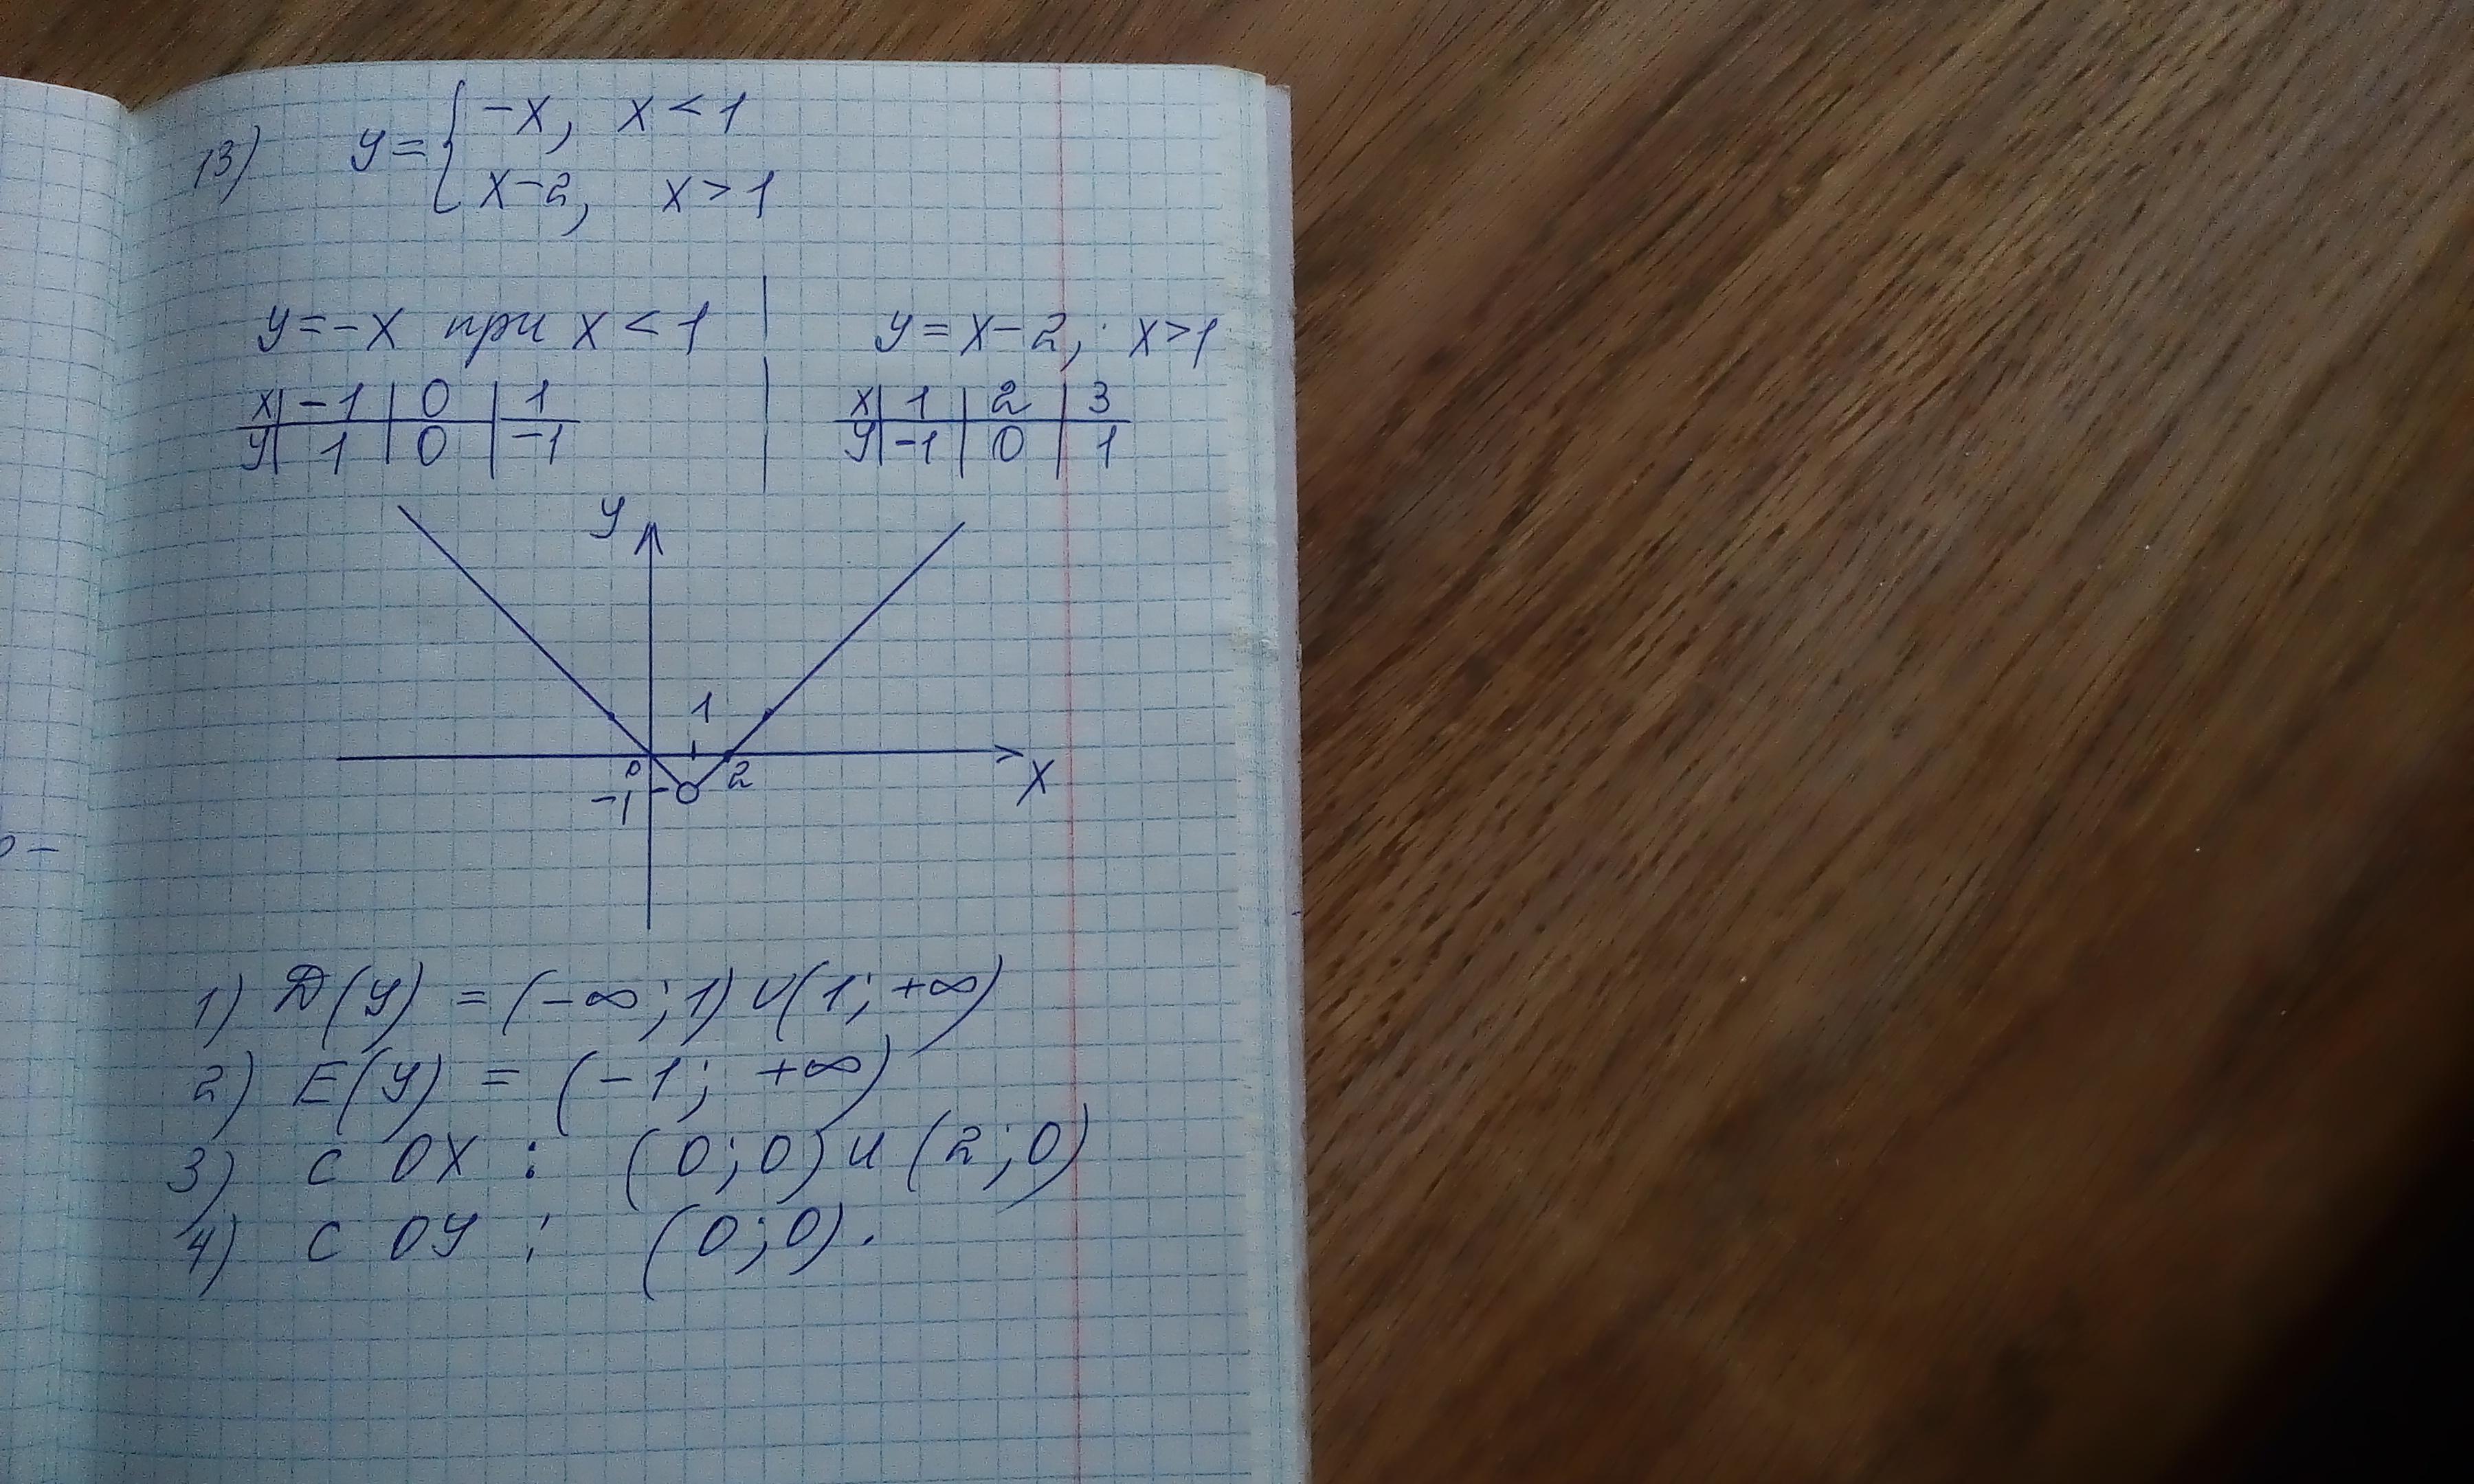 13) y = { -x, x < 1
x-2, x > 1
y = -x при x < 1 | y = x-2, x>1
x | -1 | 0 | 1
y | 1 | 0 | -1
x | 1 | 2 | 3
y | -1 | 0 | 1
y
1
0 2
-1
x
1) D(y) = (-∞; 1) ∪ (1; +∞)
2) E(y) = (-1; +∞)
3) с OX : (0;0) и (2;0)
4) с OY : (0;0).